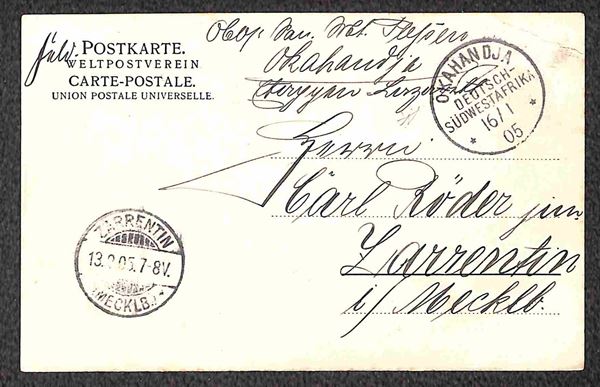 Feld- POSTKARTE.
WELTPOSTVEREIN
CARTE-POSTALE.
UNION POSTALE UNIVERSELLE.
Okahandja
OKAHANDJA
DEUTSCH-
SÜDWESTAFRIKA
16/1
05
Herrn
Carl Röder jun.
Zarrentin
i/Mecklb.
ZARRENTIN
13.2.05.7-8V.
(MECKLB.)